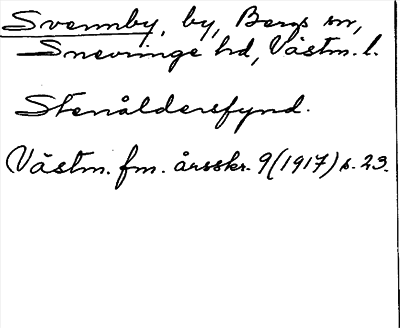 Svennby, by, Bergs sn,
Snevringe hd, Västm. l.
Stenåldersfynd.
Västm. fm. årsskr. 9 (1917) s. 23.